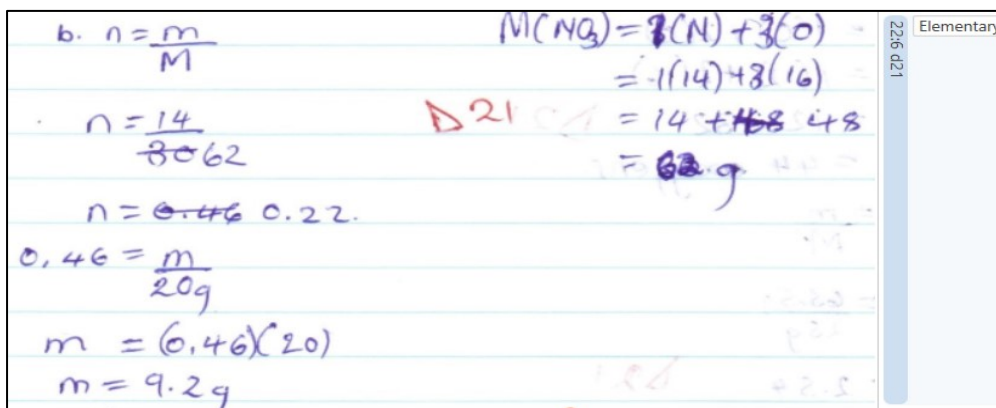 b. n = m/M
n = 14/62
n = 0.22.
0,46 = m/20g
m = (0.46)(20)
m = 9.2g
M(NO3) = 1(N) + 3(O)
= 1(14) + 3(16)
= 14 + 48
= 62 g
Δ21
22:6 d21
Elementary